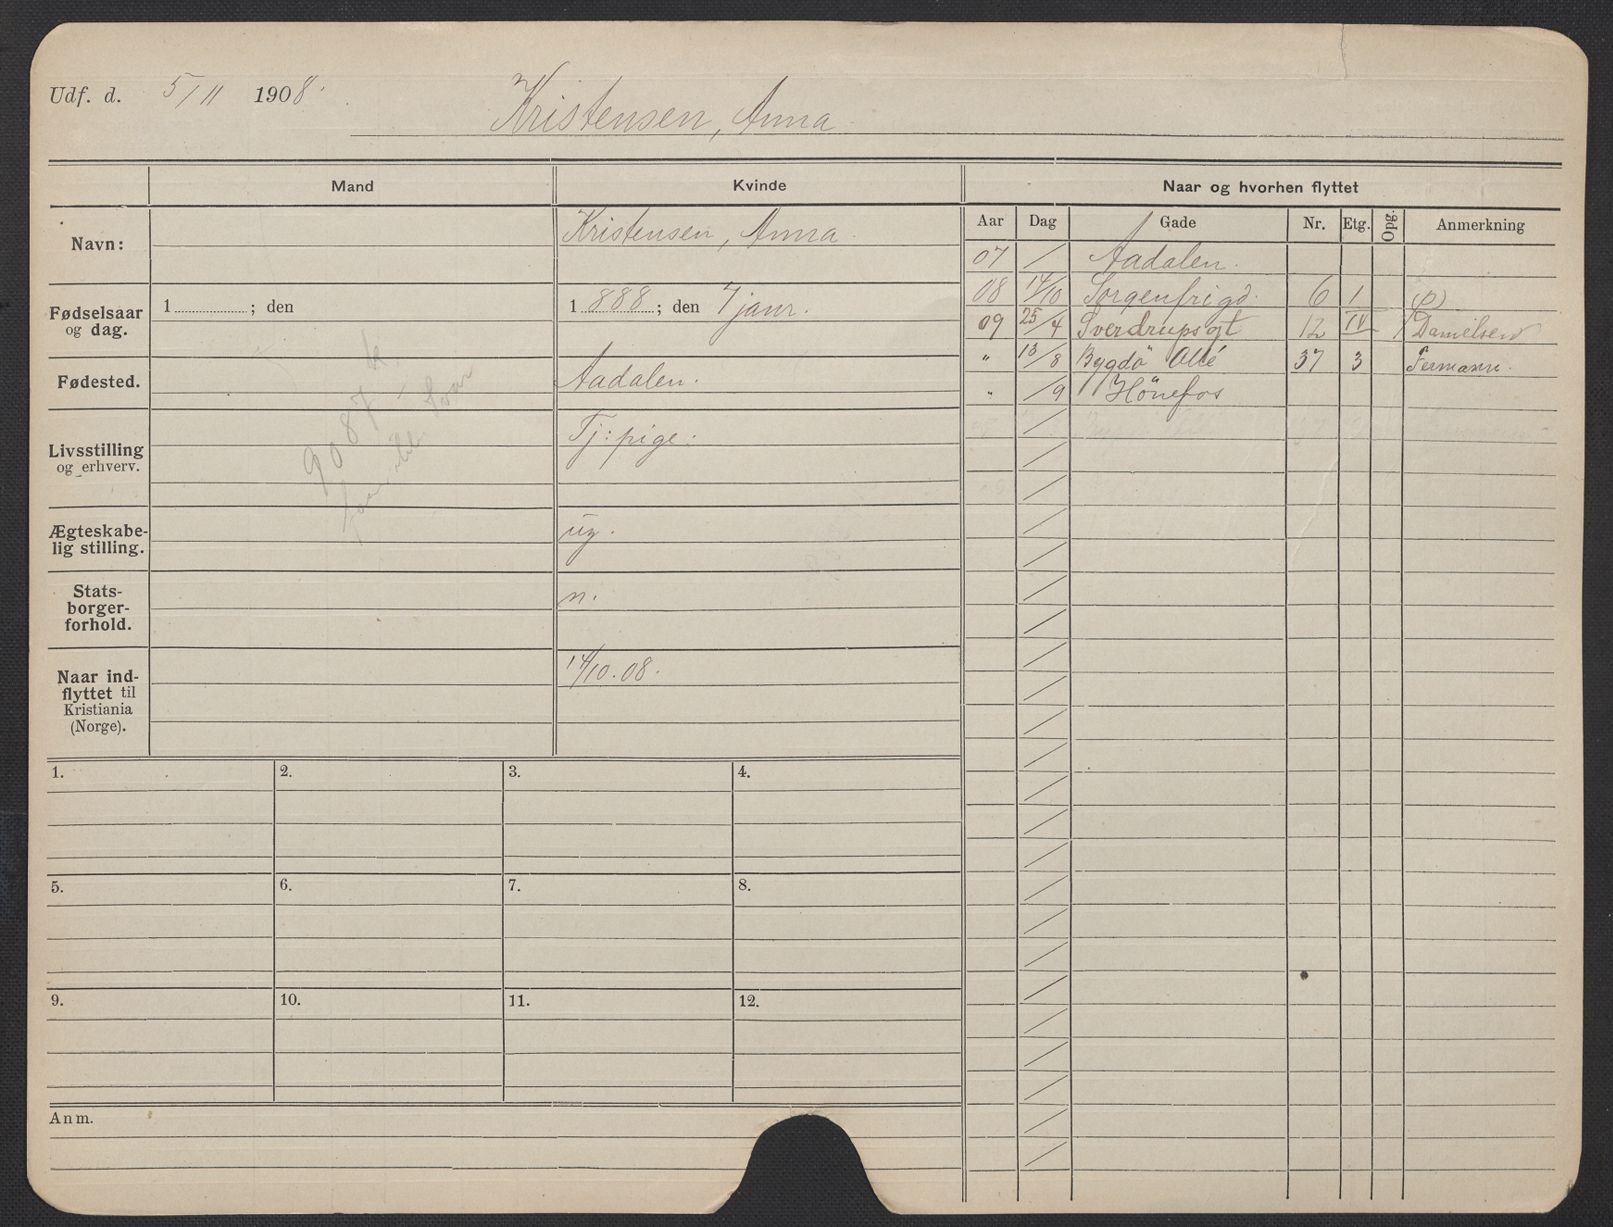 Udf. d. 5/11 1908.
Kristensen, Anna
Mand Kvinde Naar og hvorhen flyttet
Aar Dag Gade Nr. Etg. Opg. Anmerkning
Navn: Kristensen, Anna
07 / Aadalen.
Fødselsaar og dag. 1 ; den 1 888 ; den 7 janr.
08 14/10 Sorgenfrigd. 6 1. (P)
09 25/4 Sverdrupsgt 12 IV Danielsen
" 13/8 Bygdö Allé 37 3 Fermann.
" /9 Hönefos
Fødested. Aadalen.
Livsstilling og erhverv. Tj: pige:
9087
Ægteskabe-
lig stilling. ug.
Stats-
borger-
forhold. n.
Naar ind-
flyttet til
Kristiania
(Norge). 14/10.08.
1. 2. 3. 4.
5. 6. 7. 8.
9. 10. 11. 12.
Anm.